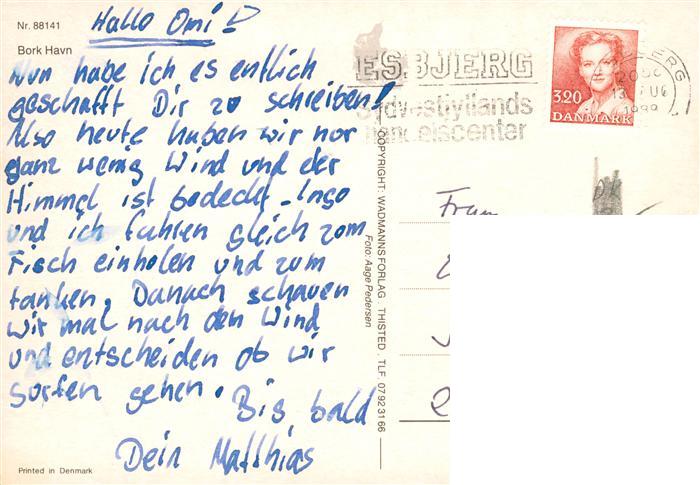 Nr. 88141
Bork Havn
Hallo Omi!
Nun habe ich es entlich
geschafft Dir zu schreiben!
Also heute haben wir nur
ganz wenig Wind und der
Himmel ist bedeckt. Ingo
und ich fahren gleich zum
Fisch einholen und zum
tanken. Danach schauen
wir mal nach dem Wind
und entscheiden ob wir
surfen gehen.
Bis bald
Dein Matthias
Printed in Denmark
COPYRIGHT: WADMANNS FORLAG . THISTED . TLF. 07923166
Foto: Aage Pedersen
ESBJERG
Sydvestjyllands
handelscenter
3.20
DANMARK
Frau